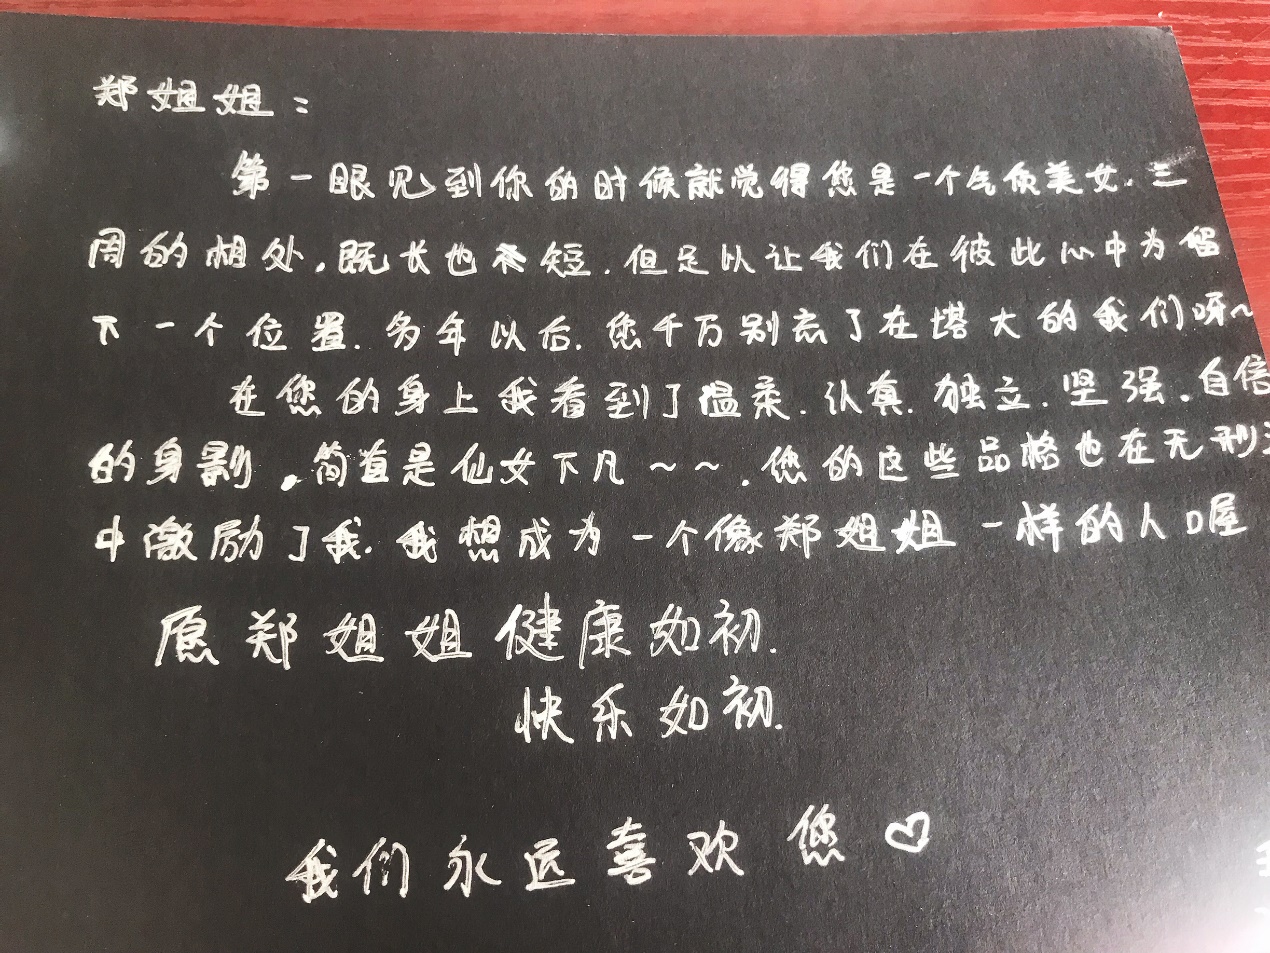 郑姐姐:
第一眼见到你的时候就觉得您是一个气质美女.三
周的相处,既长也短.但足以让我们在彼此心中为留
下一个位置.多年以后.您千万别忘了在塔大的我们呀~
在您的身上我看到了温柔.认真.独立.坚强.自信
的身影.简直是仙女下凡~~.您的这些品格也在无形
中激励了我.我想成为一个像郑姐姐一样的人喔
愿郑姐姐健康如初.
快乐如初.
我们永远喜欢您♡